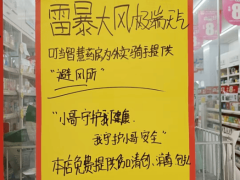 雷暴大风极端天气
叮当智慧药房为外卖骑手提供
“避风所”
“小哥守护我健康
我守护小哥安全”
本店免费提供